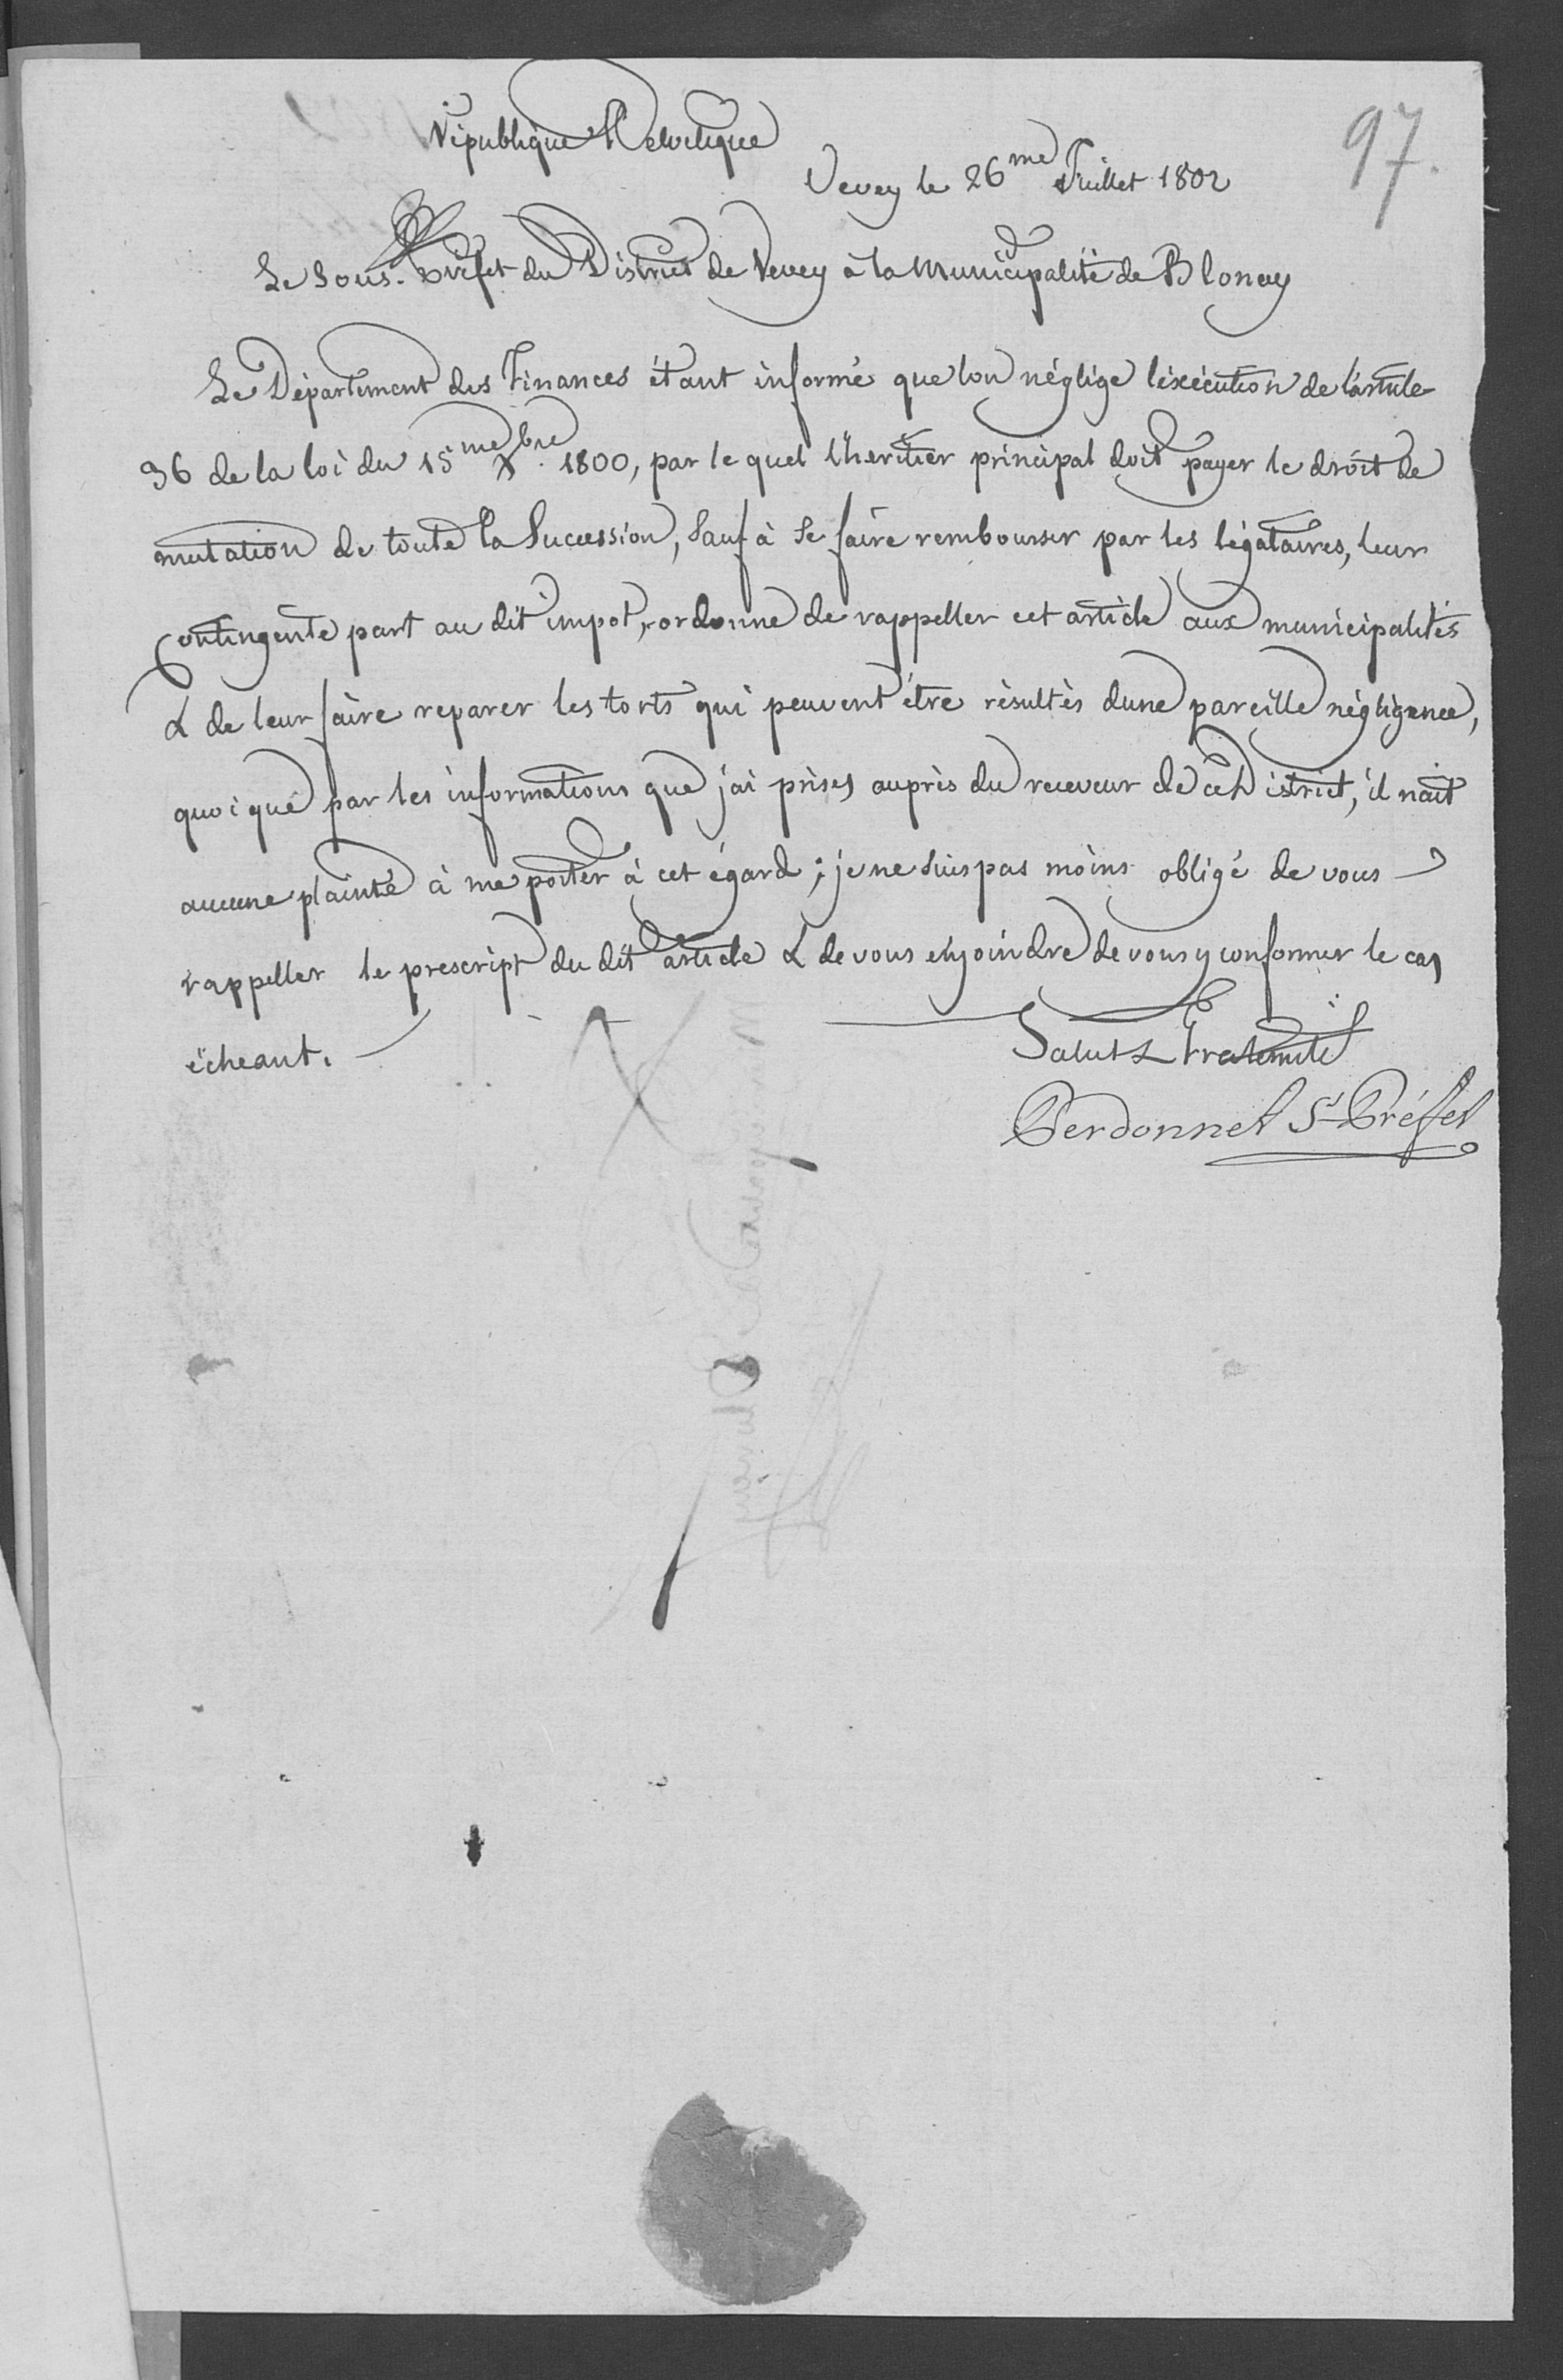 97.
République Helvetique
Vevey le 26me Juillet 1802
Le Sous-Prèfet du District de Vevey à la Municipalité de Blonay
Le Département des Finances étant informé que lon néglige léxécution de lárticle
36 de la loi du 15me Xbre 1800, par le quel lheritier principal doit payer le droit de
mutation de toute la Succession, Sauf à Se faire rembourser par les légataires, leur
Contingente part au dit impot, ordonne de rappeller cet article aux municipalités
& de leur faire reparer les torts qui peuvent étre résultés dune pareille négligence,
quoi que par les informations que jai prises auprès du receveur de ce District, il nait
aucune plainte à me porter à cet égard; je ne Suis pas moins obligé de vous
rappeller le prescript du dit article & de vous enjoindre de vous y conformer le cas
écheant.
Salut & Fraternité
Perdonnet Ss Préfet